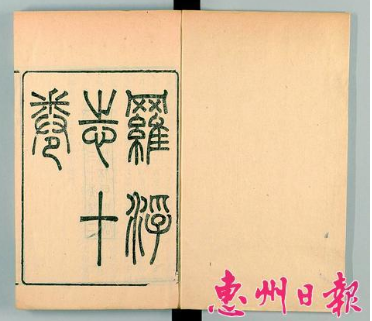 羅浮
志十
卷
惠州日報